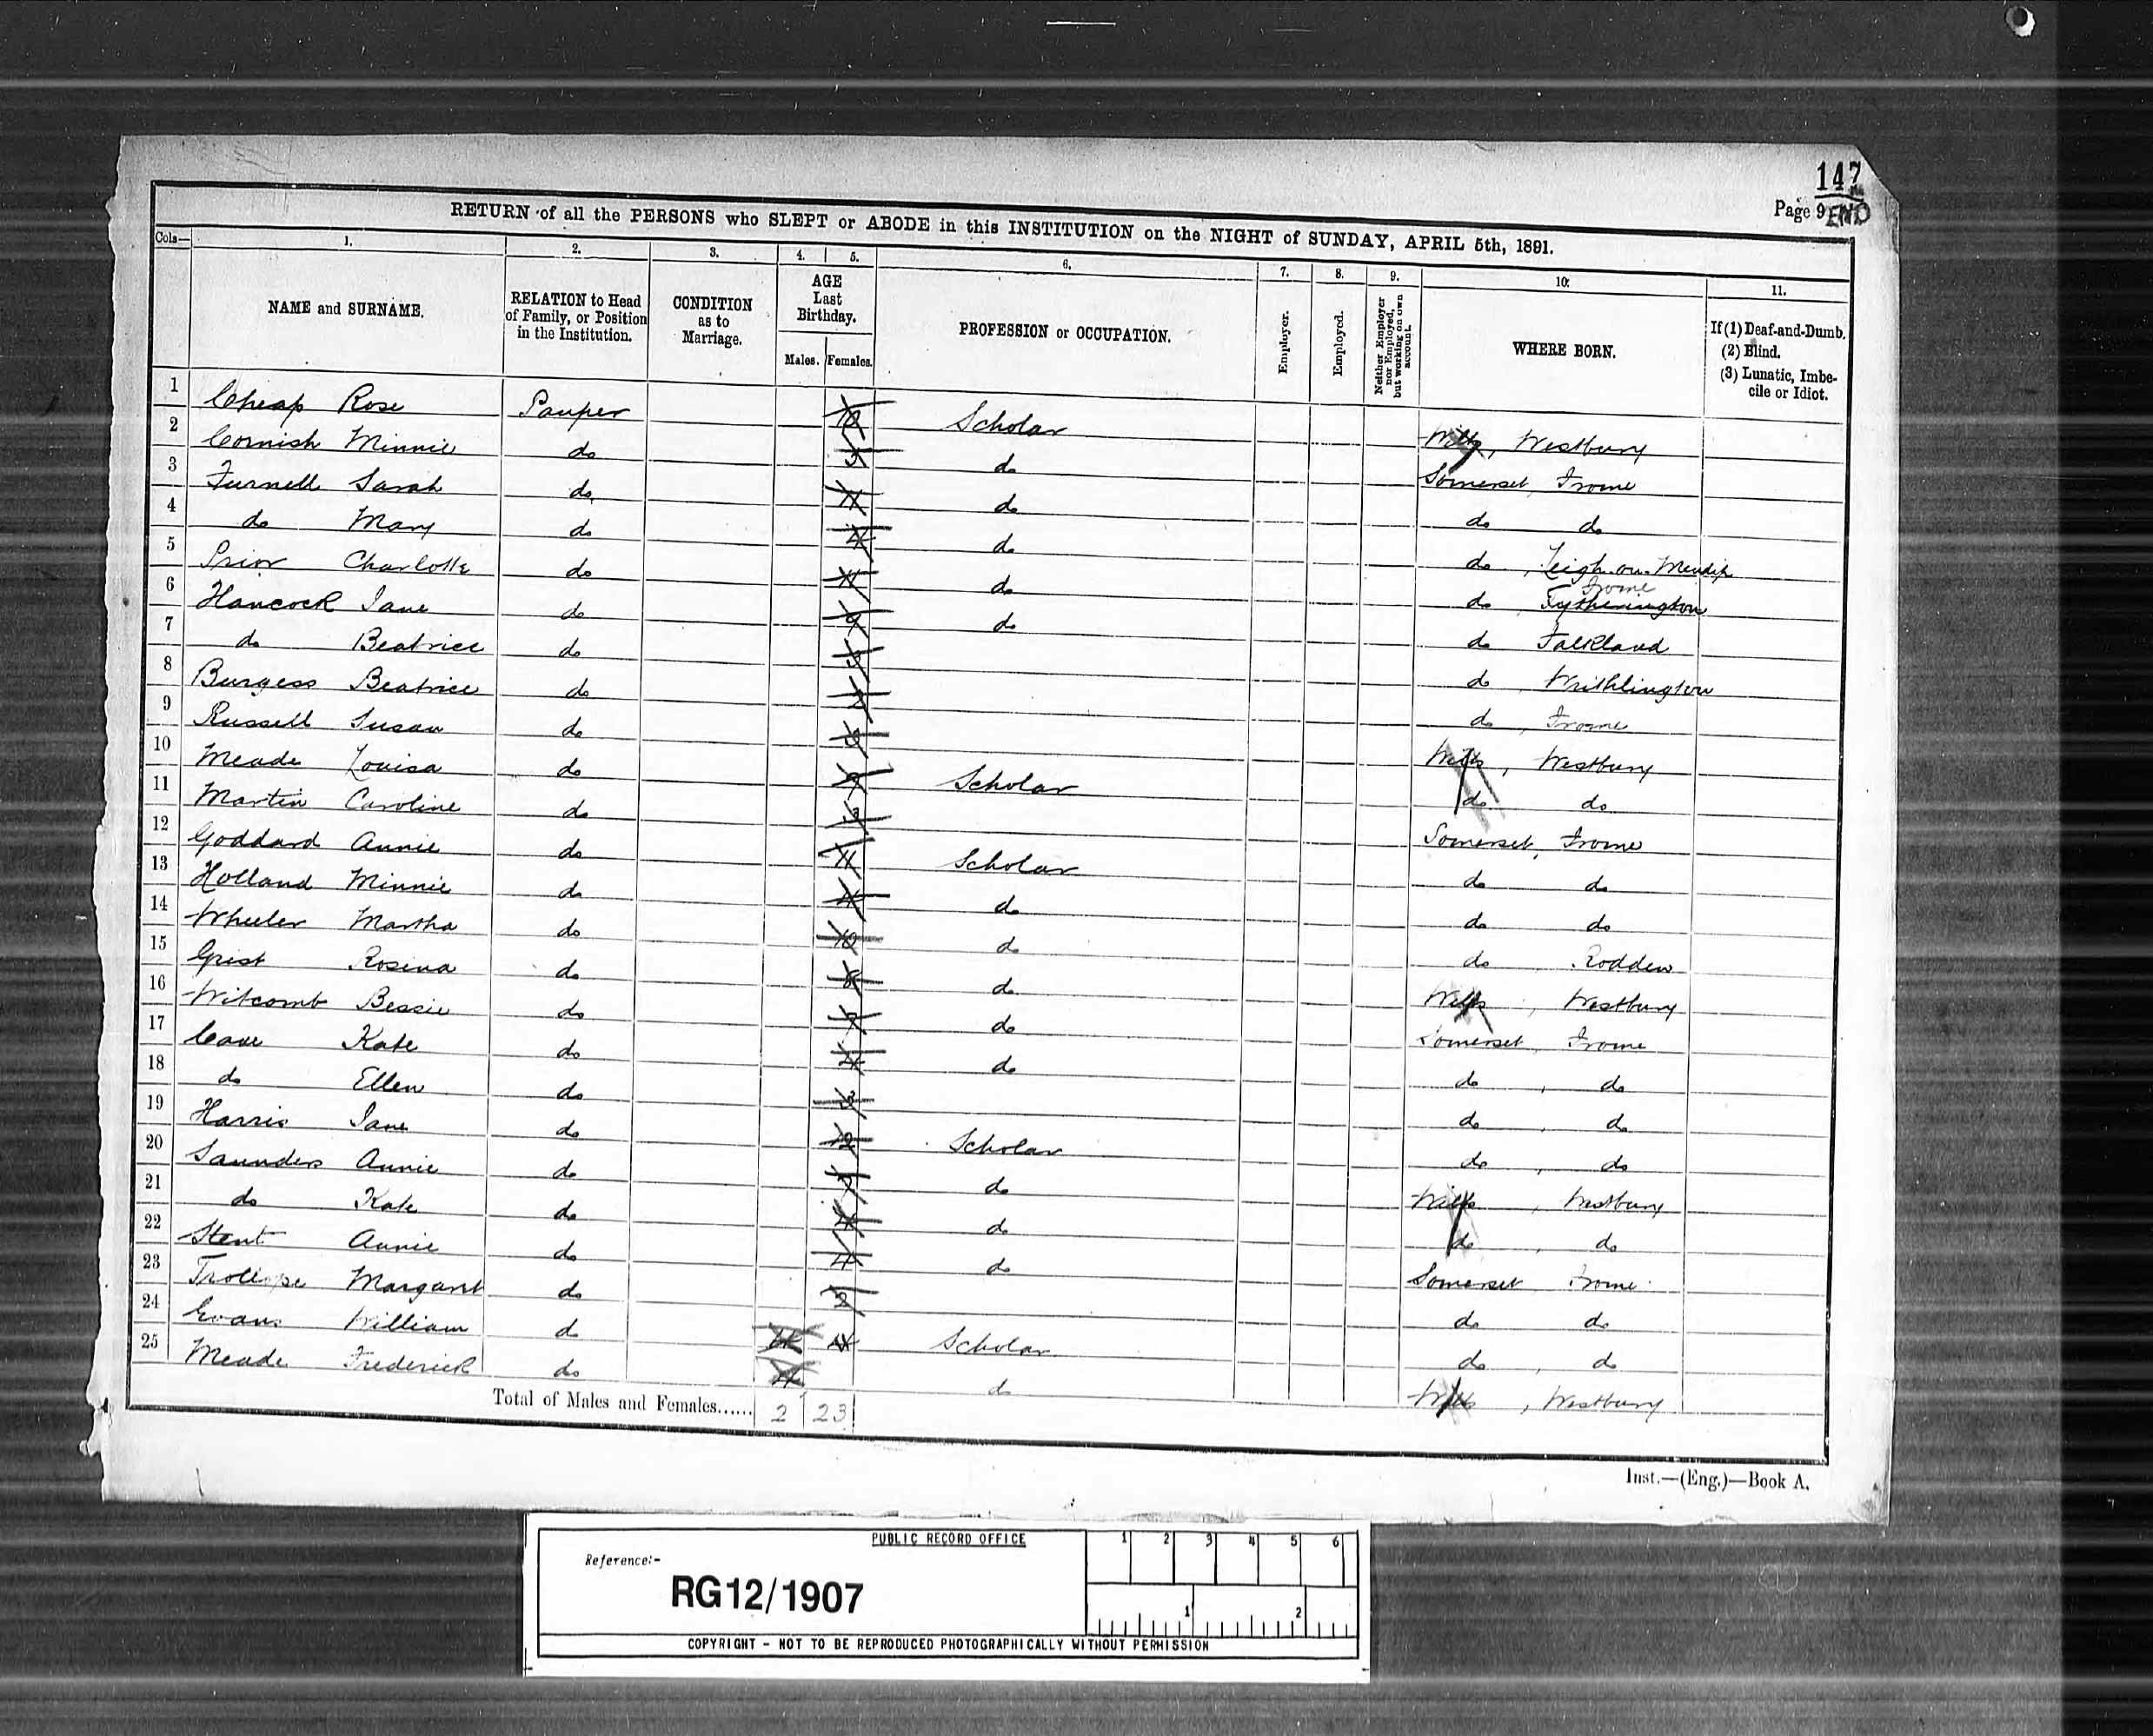 147
Page 9 END
RETURN of all the PERSONS who SLEPT or ABODE in this INSTITUTION on the NIGHT of SUNDAY, APRIL 5th, 1891.
Cols— 1. 2. 3. 4. 5. 6. 7. 8. 9. 10. 11.
NAME and SURNAME.
RELATION to Head of Family, or Position in the Institution.
CONDITION as to Marriage.
AGE Last Birthday.
Males. Females.
PROFESSION or OCCUPATION.
Employer.
Employed.
Neither Employer nor Employed, but working on own account.
WHERE BORN.
If (1) Deaf-and-Dumb. (2) Blind. (3) Lunatic, Imbecile or Idiot.
1 Cheap Rose Pauper Scholar Wilts, Westbury
2 Cornish Minnie do do Somerset, Frome
3 Furnell Sarah do do do do
4 do Mary do do do, Leigh on Mendip
5 Prior Charlotte do do do, Frome Fytherington
6 Hancock Jane do 9 do do Falkland
7 do Beatrice do do, Writhlington
8 Burgess Beatrice do do, Frome
9 Russell Susan do Wilts, Westbury
10 Meade Louisa do 9 Scholar do do
11 Martin Caroline do 3 Somerset, Frome
12 Goddard Annie do 11 Scholar do do
13 Holland Minnie do do do do
14 Wheeler Martha do 10 do do, Rodden
15 Grist Rosina do 8 do Wilts, Westbury
16 Witcomb Bessie do 7 do Somerset, Frome
17 Cave Kate do do do, do
18 do Ellen do 3 do, do
19 Harris Jane do 12 Scholar do, do
20 Saunders Annie do do Wilts, Westbury
21 do Kate do do do, do
22 Stent Annie do do Somerset Frome
23 Trollope Margaret do 2 do do
24 Evans William do Scholar do, do
25 Meade Frederick do do Wilts, Westbury
Total of Males and Females...... 2 23
Inst.—(Eng.)—Book A.
PUBLIC RECORD OFFICE
1 2 3 4 5 6
Reference:-
RG12/1907
1 2
COPYRIGHT - NOT TO BE REPRODUCED PHOTOGRAPHICALLY WITHOUT PERMISSION